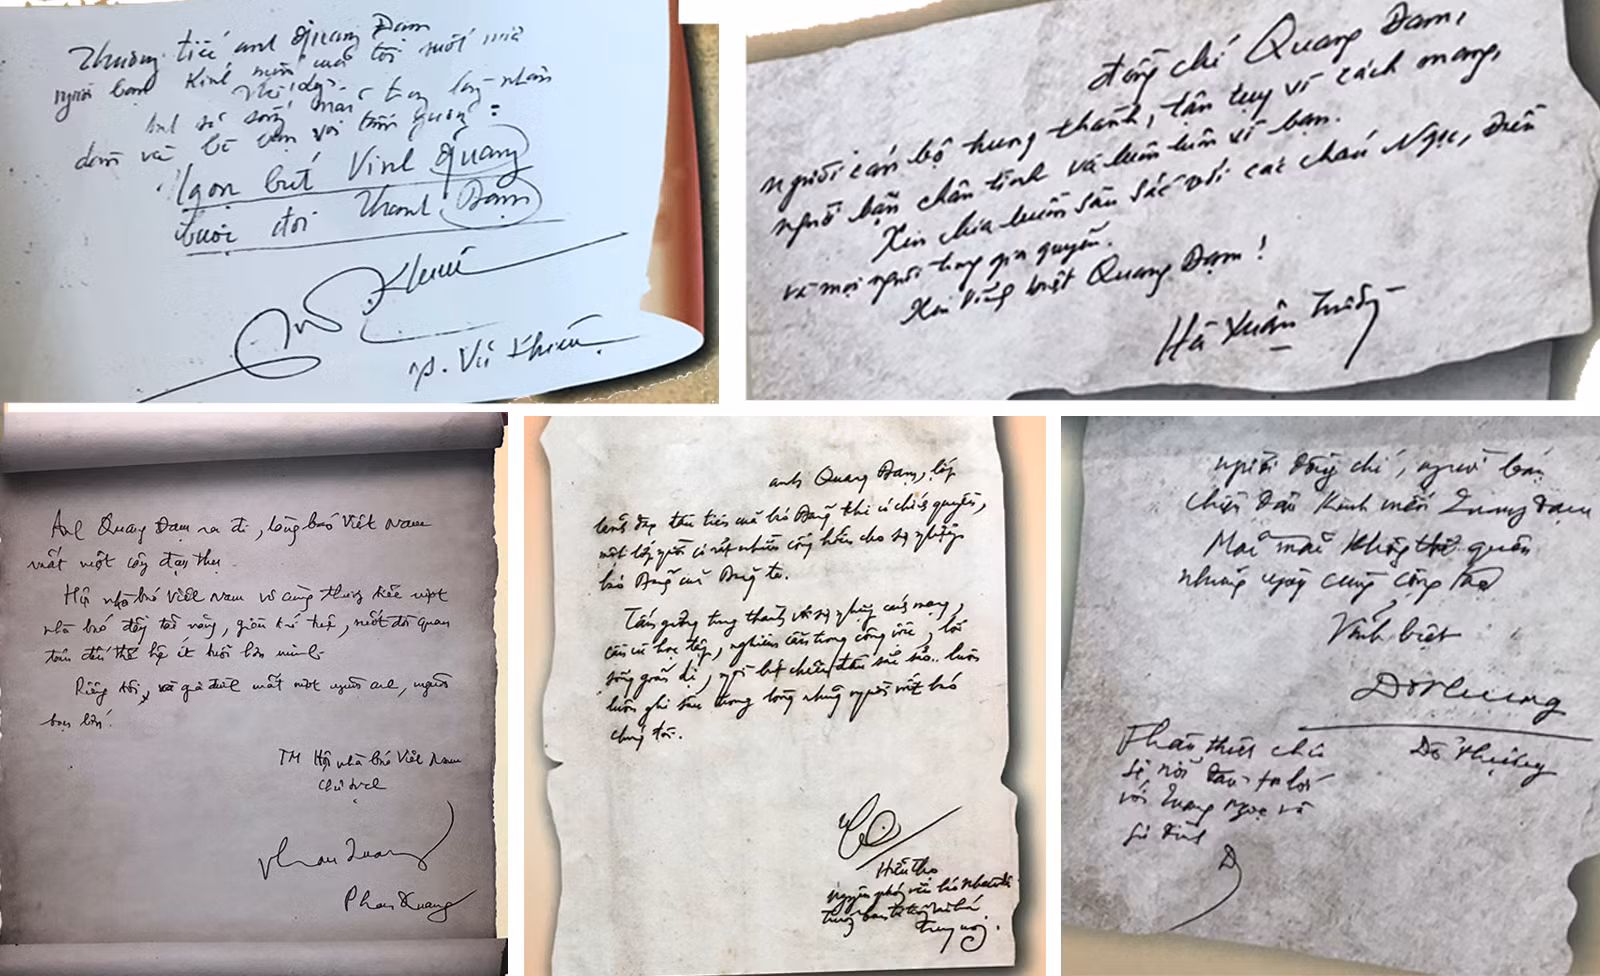 Thương tiếc anh Quang Đạm
người bạn kính mến của tôi suốt nửa
thế kỷ.
Anh sẽ sống mãi trong lòng nhân
dân và bè bạn với tấm gương:
Ngọn bút Vinh Quang
cuộc đời Thanh Đạm
Vũ Khiêu
Vũ Khiêu
đồng chí Quang Đạm,
người cán bộ trung thành, tận tụy vì cách mạng,
người bạn chân tình và luôn luôn vì bạn.
Xin chia buồn sâu sắc với các cháu Ngọc, Điền
và mọi người trong gia quyến.
Xin vĩnh biệt Quang Đạm!
Hà Xuân Trường
Anh Quang Đạm ra đi, làng báo Việt Nam
mất một cây đại thụ.
Hội nhà báo Việt Nam vô cùng thương tiếc một
nhà báo đầy tài năng, giàu trí tuệ, suốt đời quan
tâm đến thế hệ ít tuổi hơn mình.
Riêng tôi, xa anh mất một người anh, người
bạn lớn.
TM Hội nhà báo Việt Nam
Chủ tịch
Phan Quang
Phan Quang
anh Quang Đạm, lớp
lãnh đạo đầu tiên của báo Đảng khi có chính quyền,
một lớp người có rất nhiều cống hiến cho sự nghiệp
báo Đảng của Đảng ta.
Tấm gương trung thành với sự nghiệp cách mạng,
cần cù học tập, nghiêm cẩn trong công việc, lối
sống giản dị, ngòi bút chiến đấu sắc sảo.. luôn
luôn ghi sâu trong lòng những người viết báo
chúng tôi.
Hữu Thọ
Nguyên phó báo Nhân dân
Trưởng ban tư tưởng văn hoá
Trung ương.
người đồng chí, người bạn
chiến đấu kính mến Quang Đạm
Mãi mãi không thể quên
những ngày cùng cộng tác
Vĩnh biệt
Đỗ Phượng
Đỗ Phượng
Thân thiết chia
sẻ nỗi đau to lớn
với Quang Ngọc và
gia đình
Đ